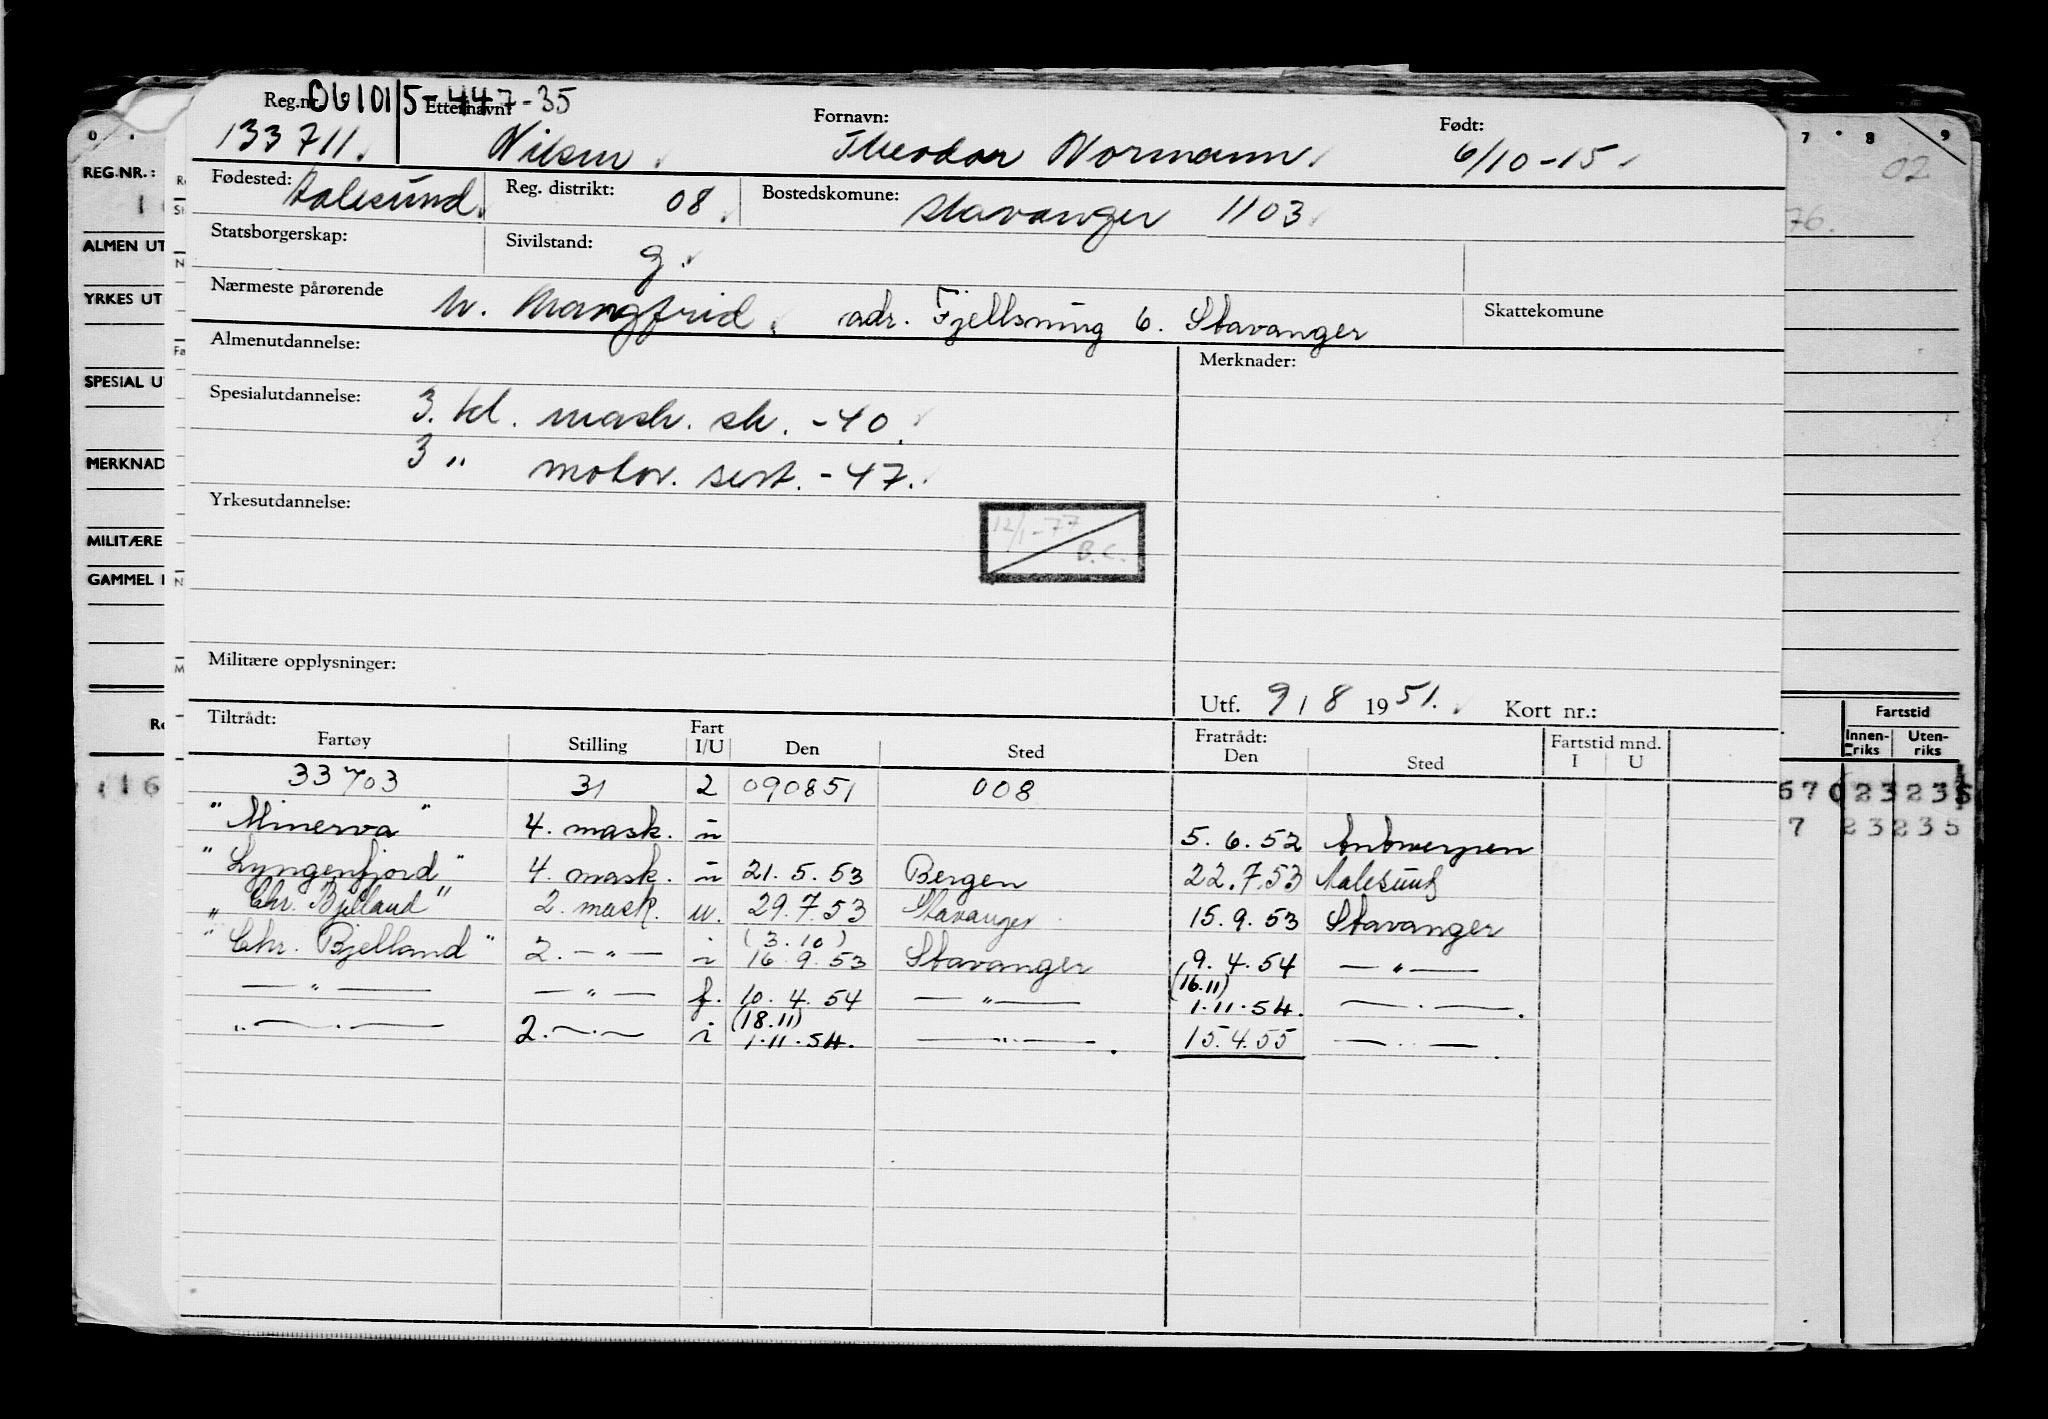 Reg.nr. 061015-447-35 Etternavn: Fornavn: Født:
133711. Nilsen Theodor Normann 6/10-15
Fødested: Aalesund Reg. distrikt: 08 Bostedskomune: Stavanger 1103
Statsborgerskap: Sivilstand: g.
Nærmeste pårørende h. Mangfrid. adr. Fjellsning 6. Stavanger Skattekomune
Almenutdannelse: Merknader:
Spesialutdannelse: 3. kl. mask. sk. -40.
3 " motor. sert. -47.
Yrkesutdannelse:
12/1-77
B.C.
Militære opplysninger:
Utf. 9/8 1951. Kort nr.:
Tiltrådt: Fratrådt:
Fartøy Stilling Fart I/U Den Sted Den Sted Fartstid mnd. I U
33703 31 2 090851 008
"Minerva" 4. mask. u 5.6.52 Antwerpen
"Lyngenfjord" 4. mask. u 21.5.53 Bergen 22.7.53 Aalesund
"Chr. Bjelland" 2. mask. u. 29.7.53 Stavanger 15.9.53 Stavanger
"Chr. Bjelland" 2. — " — i (3.10) 16.9.53 Stavanger 9.4.54 — " —
— " — — " — f. 10.4.54 — " — (16.11) 1.11.54. — " —
— " — 2. — " — i (18.11) 1.11.54. — " — 15.4.55 — " —
REG.NR.:
ALMEN UT
YRKES UT
SPESIAL U
MERKNAD
MILITÆRE
GAMMEL
7 8 9
02
76.
Fartstid
Innenriks Utenriks
116
7 23235